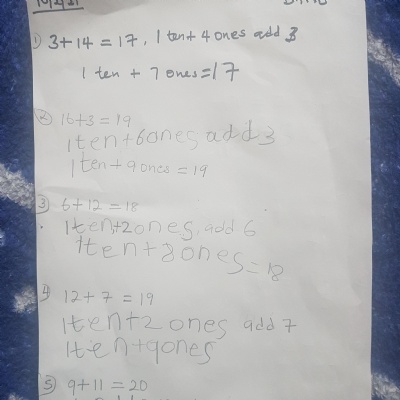 1) 3+14=17, 1 ten+4 ones add 3
1 ten + 7 ones=17
2) 16+3=19
1ten+6ones add 3
1ten+9ones=19
3) 6+12=18
1ten+2ones add 6
1ten+8ones=18
4) 12+7=19
1ten+2 ones add 7
1ten+9ones
5) 9+11=20